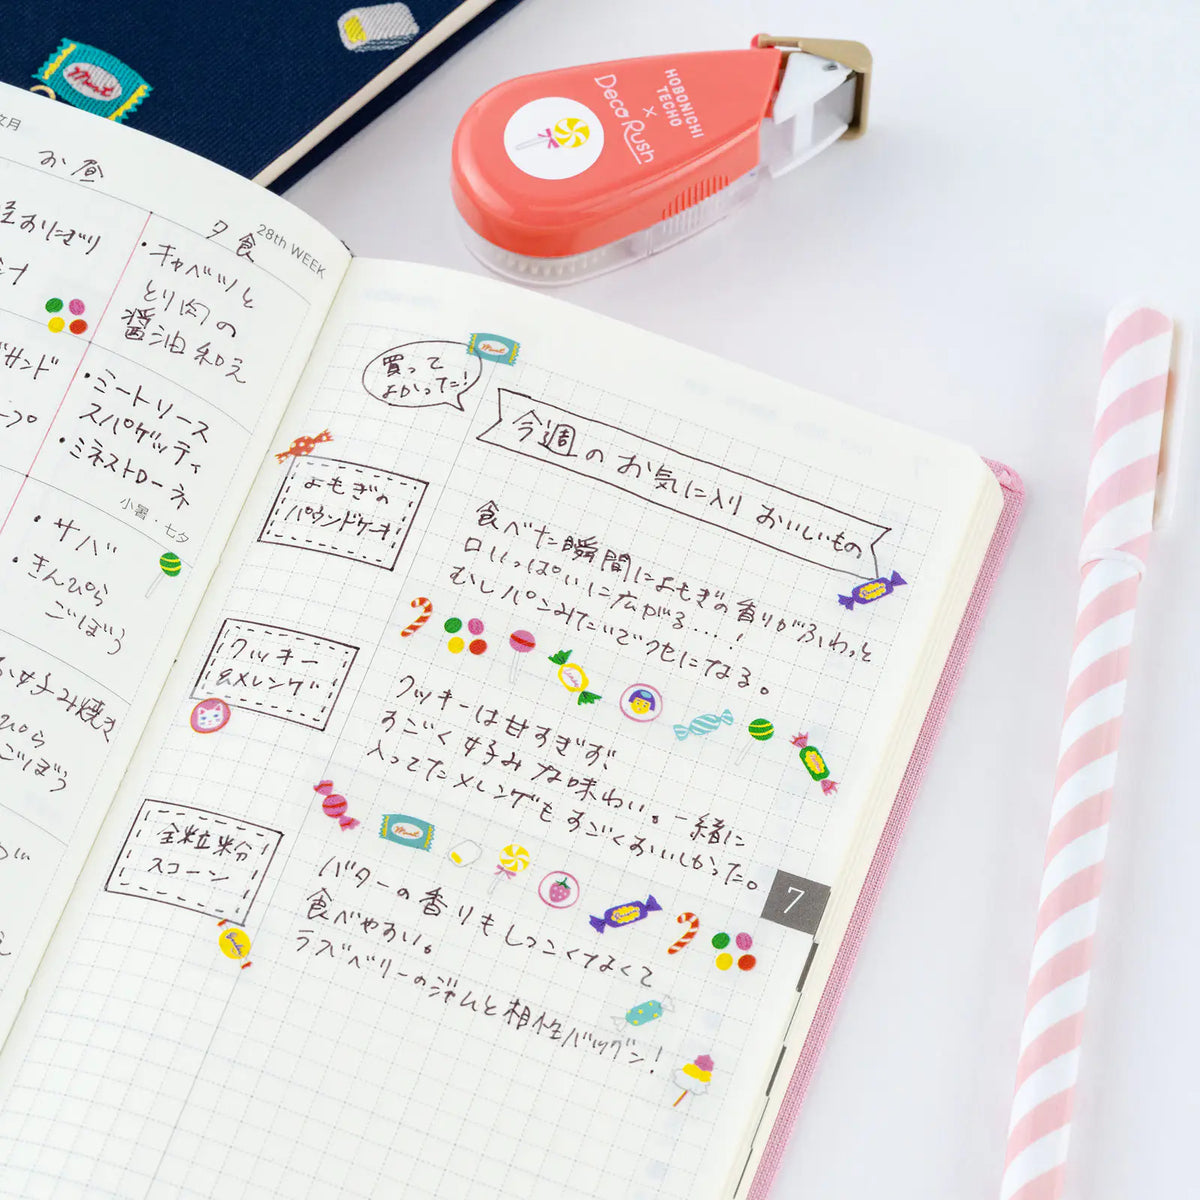 HOBONICHI
TECHO
×
Deco Rush
文月
お昼
夕食
28th WEEK
おにぎり
サンド
・キャベツと
とり肉の
醤油和え
・ミートソース
スパゲッティ
・ミネストローネ
小暑・七夕
・サバ
・きんぴら
ごぼう
お好み焼き
ぴら
ごぼう
買って
よかった!
今週のお気に入り おいしいもの
よもぎの
パウンドケーキ
食べた瞬間によもぎの香りがふわっと
口いっぱいに広がる…!
むしパンみたいでクセになる。
クッキー
&メレンゲ
クッキーは甘すぎず、
すごく好みな味わい。一緒に
入ってたメレンゲもすごくおいしかった。
全粒粉
スコーン
バターの香りもしつこくなくて
食べやすい。
ラズベリーのジャムと相性バツグン!
7